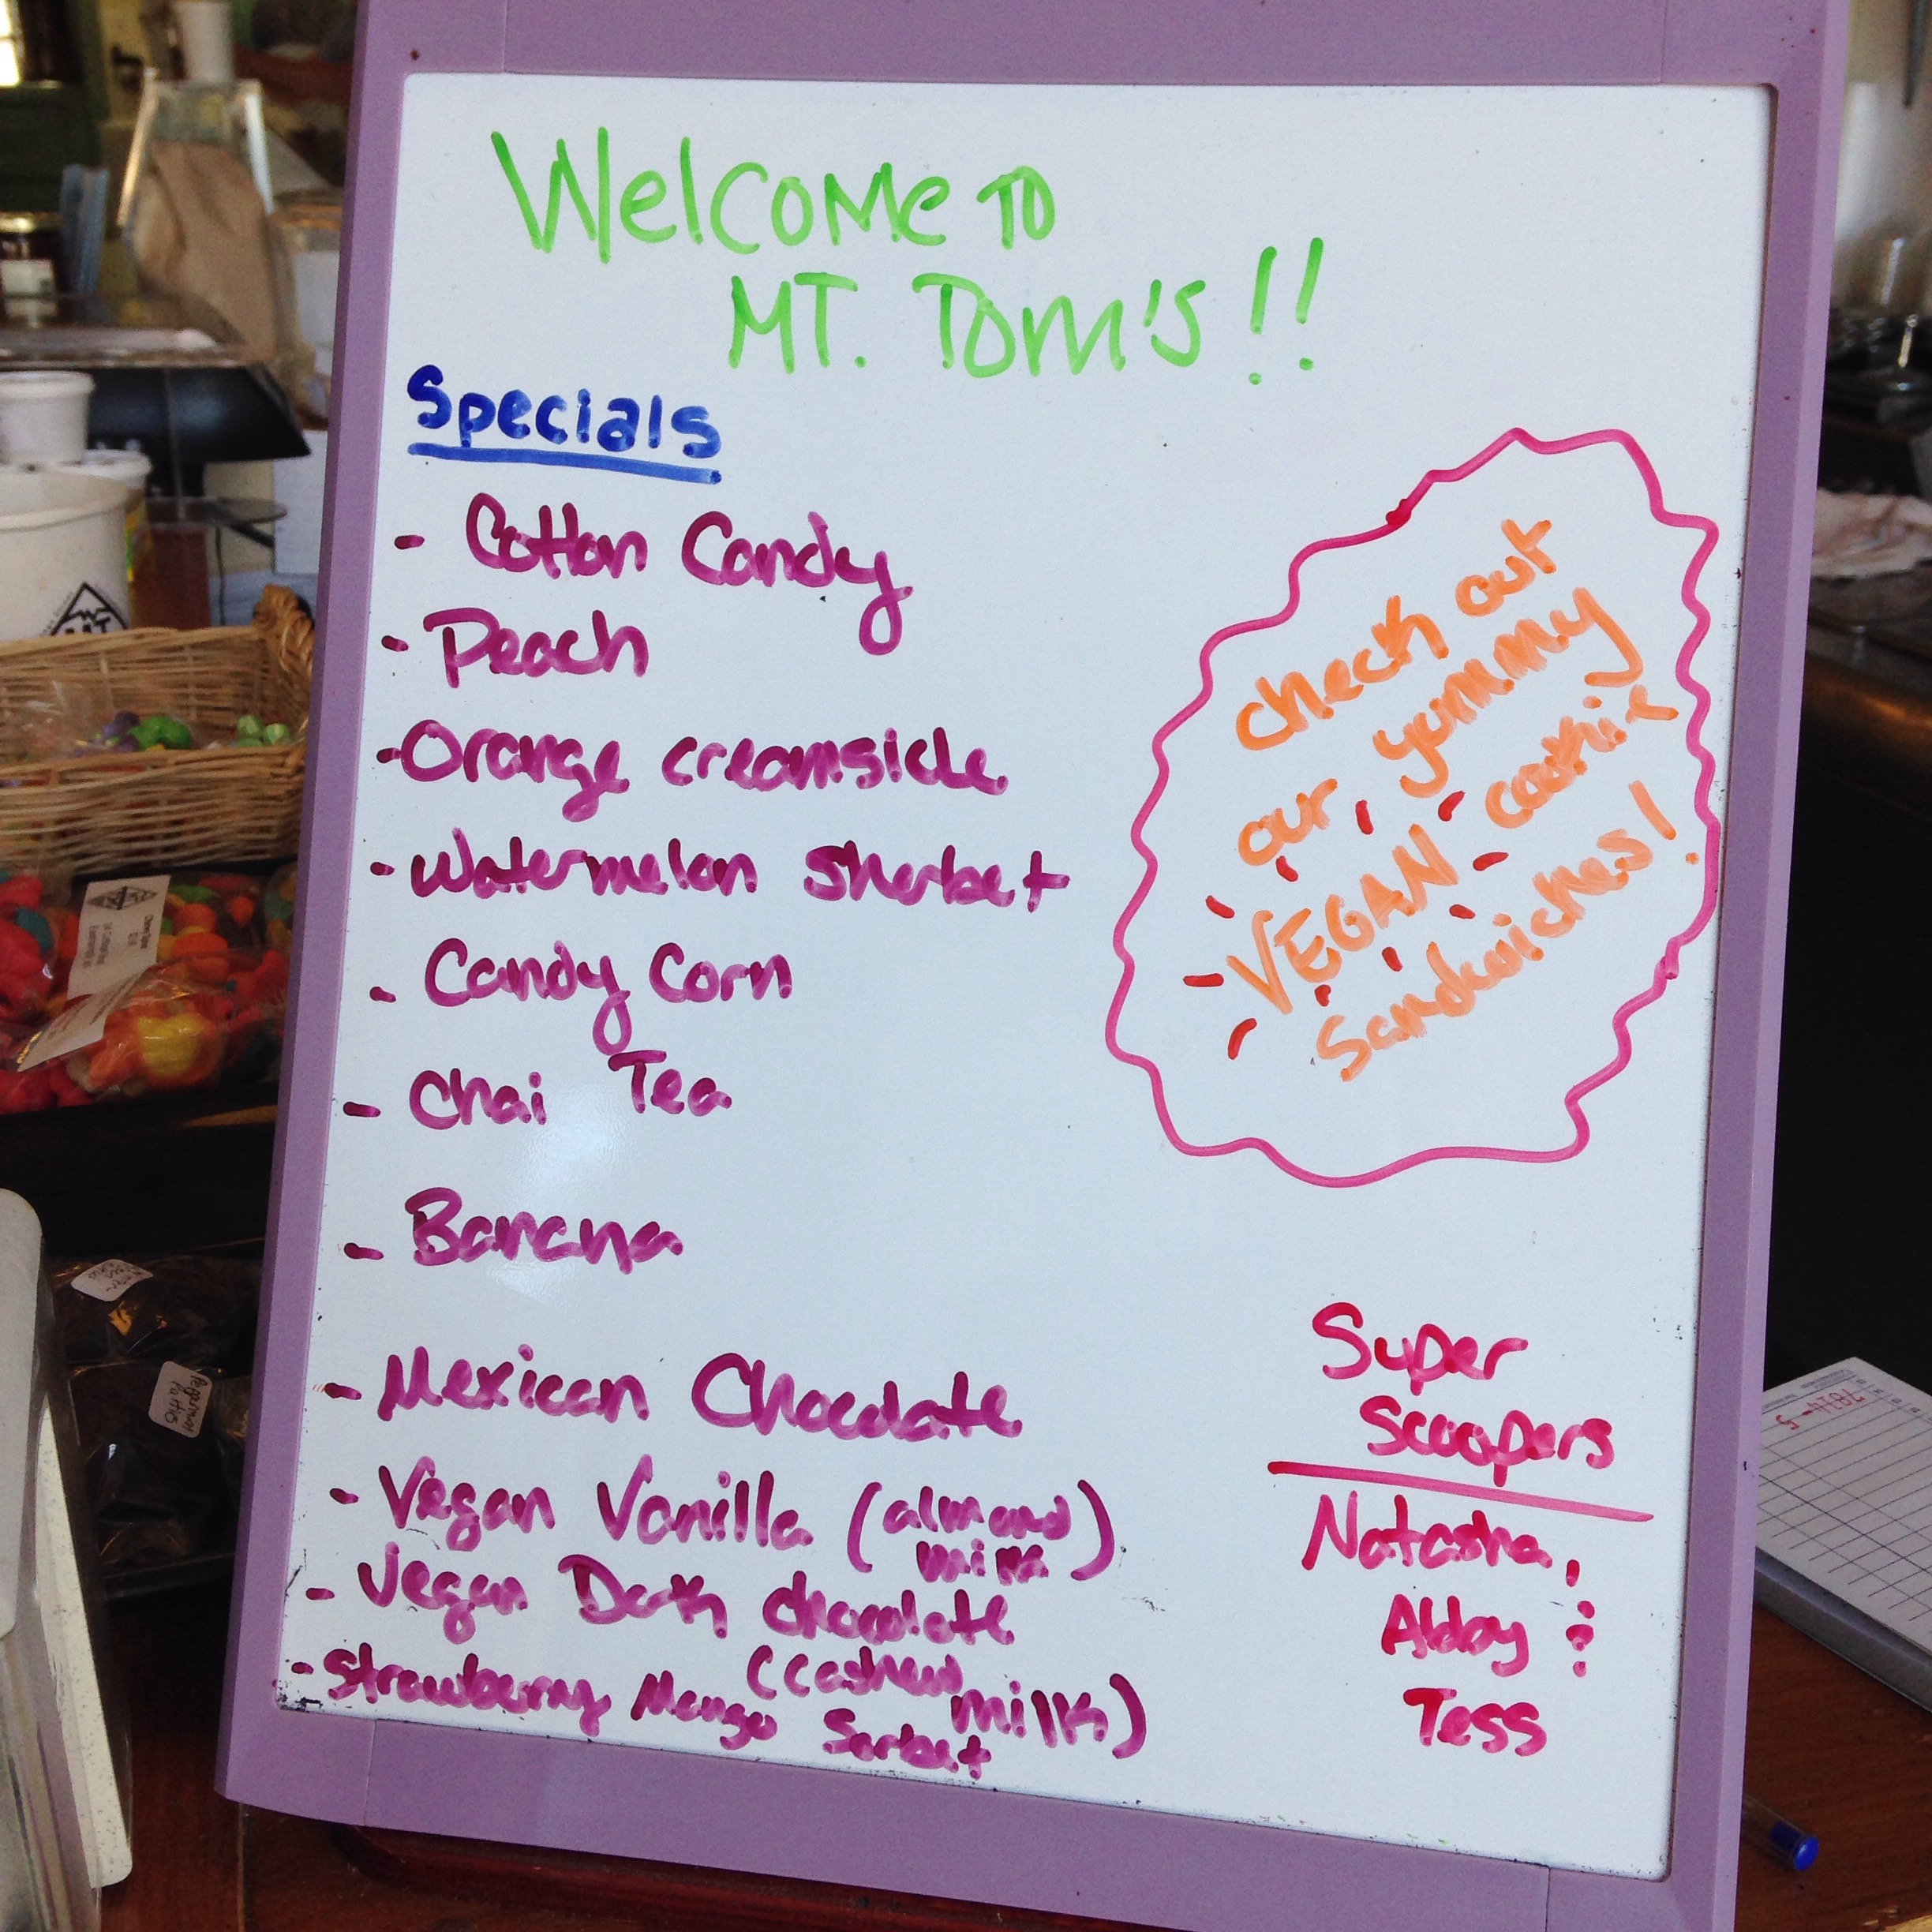 Welcome TO
MT. Tom's!!
Specials
- Cotton Candy
- Peach
- Orange creamsicle
- Watermelon Sherbet
- Candy Corn
- Chai Tea
- Banana
- Mexican Chocolate
- Vegan Vanilla (almond
milk)
- Vegan Dark Chocolate
(cashew
milk)
- Strawberry Mango
Sorbet
check out
our yummy
VEGAN cookie
Sandwiches!
Super
Scoopers
Natasha,
Alday &
Tess